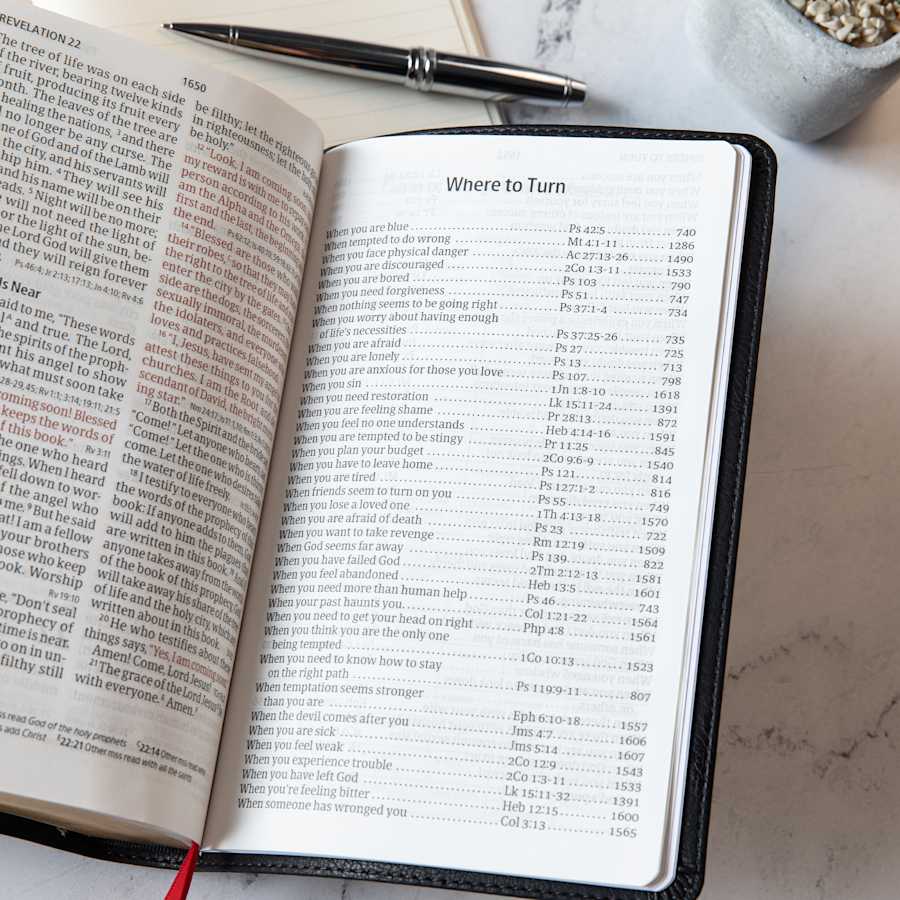 REVELATION 22
1650
The tree of life was on each side
of the river, bearing twelve kinds
of fruit, producing its fruit every
month. The leaves of the tree are
healing the nations, ³and there
no longer be any curse. The
ne of God and of the Lamb will
the city, and his servants will
ship him. ⁴They will see his
and his name will be on their
eads. ⁵Night will be no more;
will not need the light of
or the light of the sun, be-
he Lord God will give them
d they will reign forever
Ps 46:4; Jr 2:13; 17:13; Jn 4:10; Rv 4:6
Is Near
aid to me, "These words
and true. The Lord,
he spirits of the proph-
nt his angel to show
what must soon take
28-29,45; Rv 1:1; 3:14; 19:11; 21:5
coming soon! Blessed
keeps the words of
f this book." Rv 3:11
he one who heard
ings. When I heard
fell down to wor-
of the angel who
me. ⁹But he said
at! I am a fellow
your brothers
hose who keep
ook. Worship
Rv 19:10
e, "Don't seal
prophecy of
time is near.
o on in un-
filthy still
be filthy; let the righteous go
in righteousness; let the
be holy."
¹² "Look, I am coming soon,
my reward is with me to repay
person according to his
am the Alpha and the Omega,
first and the last, the beginning
the end.
¹⁴ "Blessed are those who
their robes, so that they may have
the right to the tree of life
enter the city by the gates.
side are the dogs, the sorcerers
sexually immoral, the murderers
the idolaters, and everyone
loves and practices falsehood
¹⁶ "I, Jesus, have sent my angel
attest these things to you
churches. I am the Root and
scendant of David, the bright
ing star."
¹⁷ Both the Spirit and the bride
"Come!" Let anyone who hears
"Come!" Let the one who is thirsty
come. Let the one who desires
the water of life freely.
¹⁸ I testify to everyone who hears
the words of the prophecy of
book: If anyone adds to them, God
will add to him the plagues that
are written in this book. ¹⁹ And
anyone takes away from the words
of the book of this prophecy, God
will take away his share of the tree
of life and the holy city, which
written about in this book.
²⁰ He who testifies about these
things says, "Yes, I am coming soon
Amen! Come, Lord Jesus!
²¹ The grace of the Lord Jesus be
with everyone. Amen.
ss read God of the holy prophets 22:14 Other mss read
s add Christ 22:21 Other mss read with all the saints
Where to Turn
When you are blue Ps 42:5 740
When tempted to do wrong Mt 4:1-11 1286
When you face physical danger Ac 27:13-26 1490
When you are discouraged 2Co 1:3-11 1533
When you are bored Ps 103 790
When you need forgiveness Ps 51 747
When nothing seems to be going right Ps 37:1-4 734
When you worry about having enough
of life's necessities Ps 37:25-26 735
When you are afraid Ps 27 725
When you are lonely Ps 13 713
When you are anxious for those you love Ps 107 798
When you sin 1Jn 1:8-10 1618
When you need restoration Lk 15:11-24 1391
When you are feeling shame Pr 28:13 872
When you feel no one understands Heb 4:14-16 1591
When you are tempted to be stingy Pr 11:25 845
When you plan your budget 2Co 9:6-9 1540
When you have to leave home Ps 121 814
When you are tired Ps 127:1-2 816
When friends seem to turn on you Ps 55 749
When you lose a loved one 1Th 4:13-18 1570
When you are afraid of death Ps 23 722
When you want to take revenge Rm 12:19 1509
When God seems far away Ps 139 822
When you have failed God 2Tm 2:12-13 1581
When you feel abandoned Heb 13:5 1601
When you need more than human help Ps 46 743
When your past haunts you Col 1:21-22 1564
When you need to get your head on right Php 4:8 1561
When you think you are the only one
being tempted 1Co 10:13 1523
When you need to know how to stay
on the right path Ps 119:9-11 807
When temptation seems stronger
than you are Eph 6:10-18 1557
When the devil comes after you Jms 4:7 1606
When you are sick Jms 5:14 1607
When you feel weak 2Co 12:9 1543
When you experience trouble 2Co 1:3-11 1533
When you have left God Lk 15:11-32 1391
When you're feeling bitter Heb 12:15 1600
When someone has wronged you Col 3:13 1565